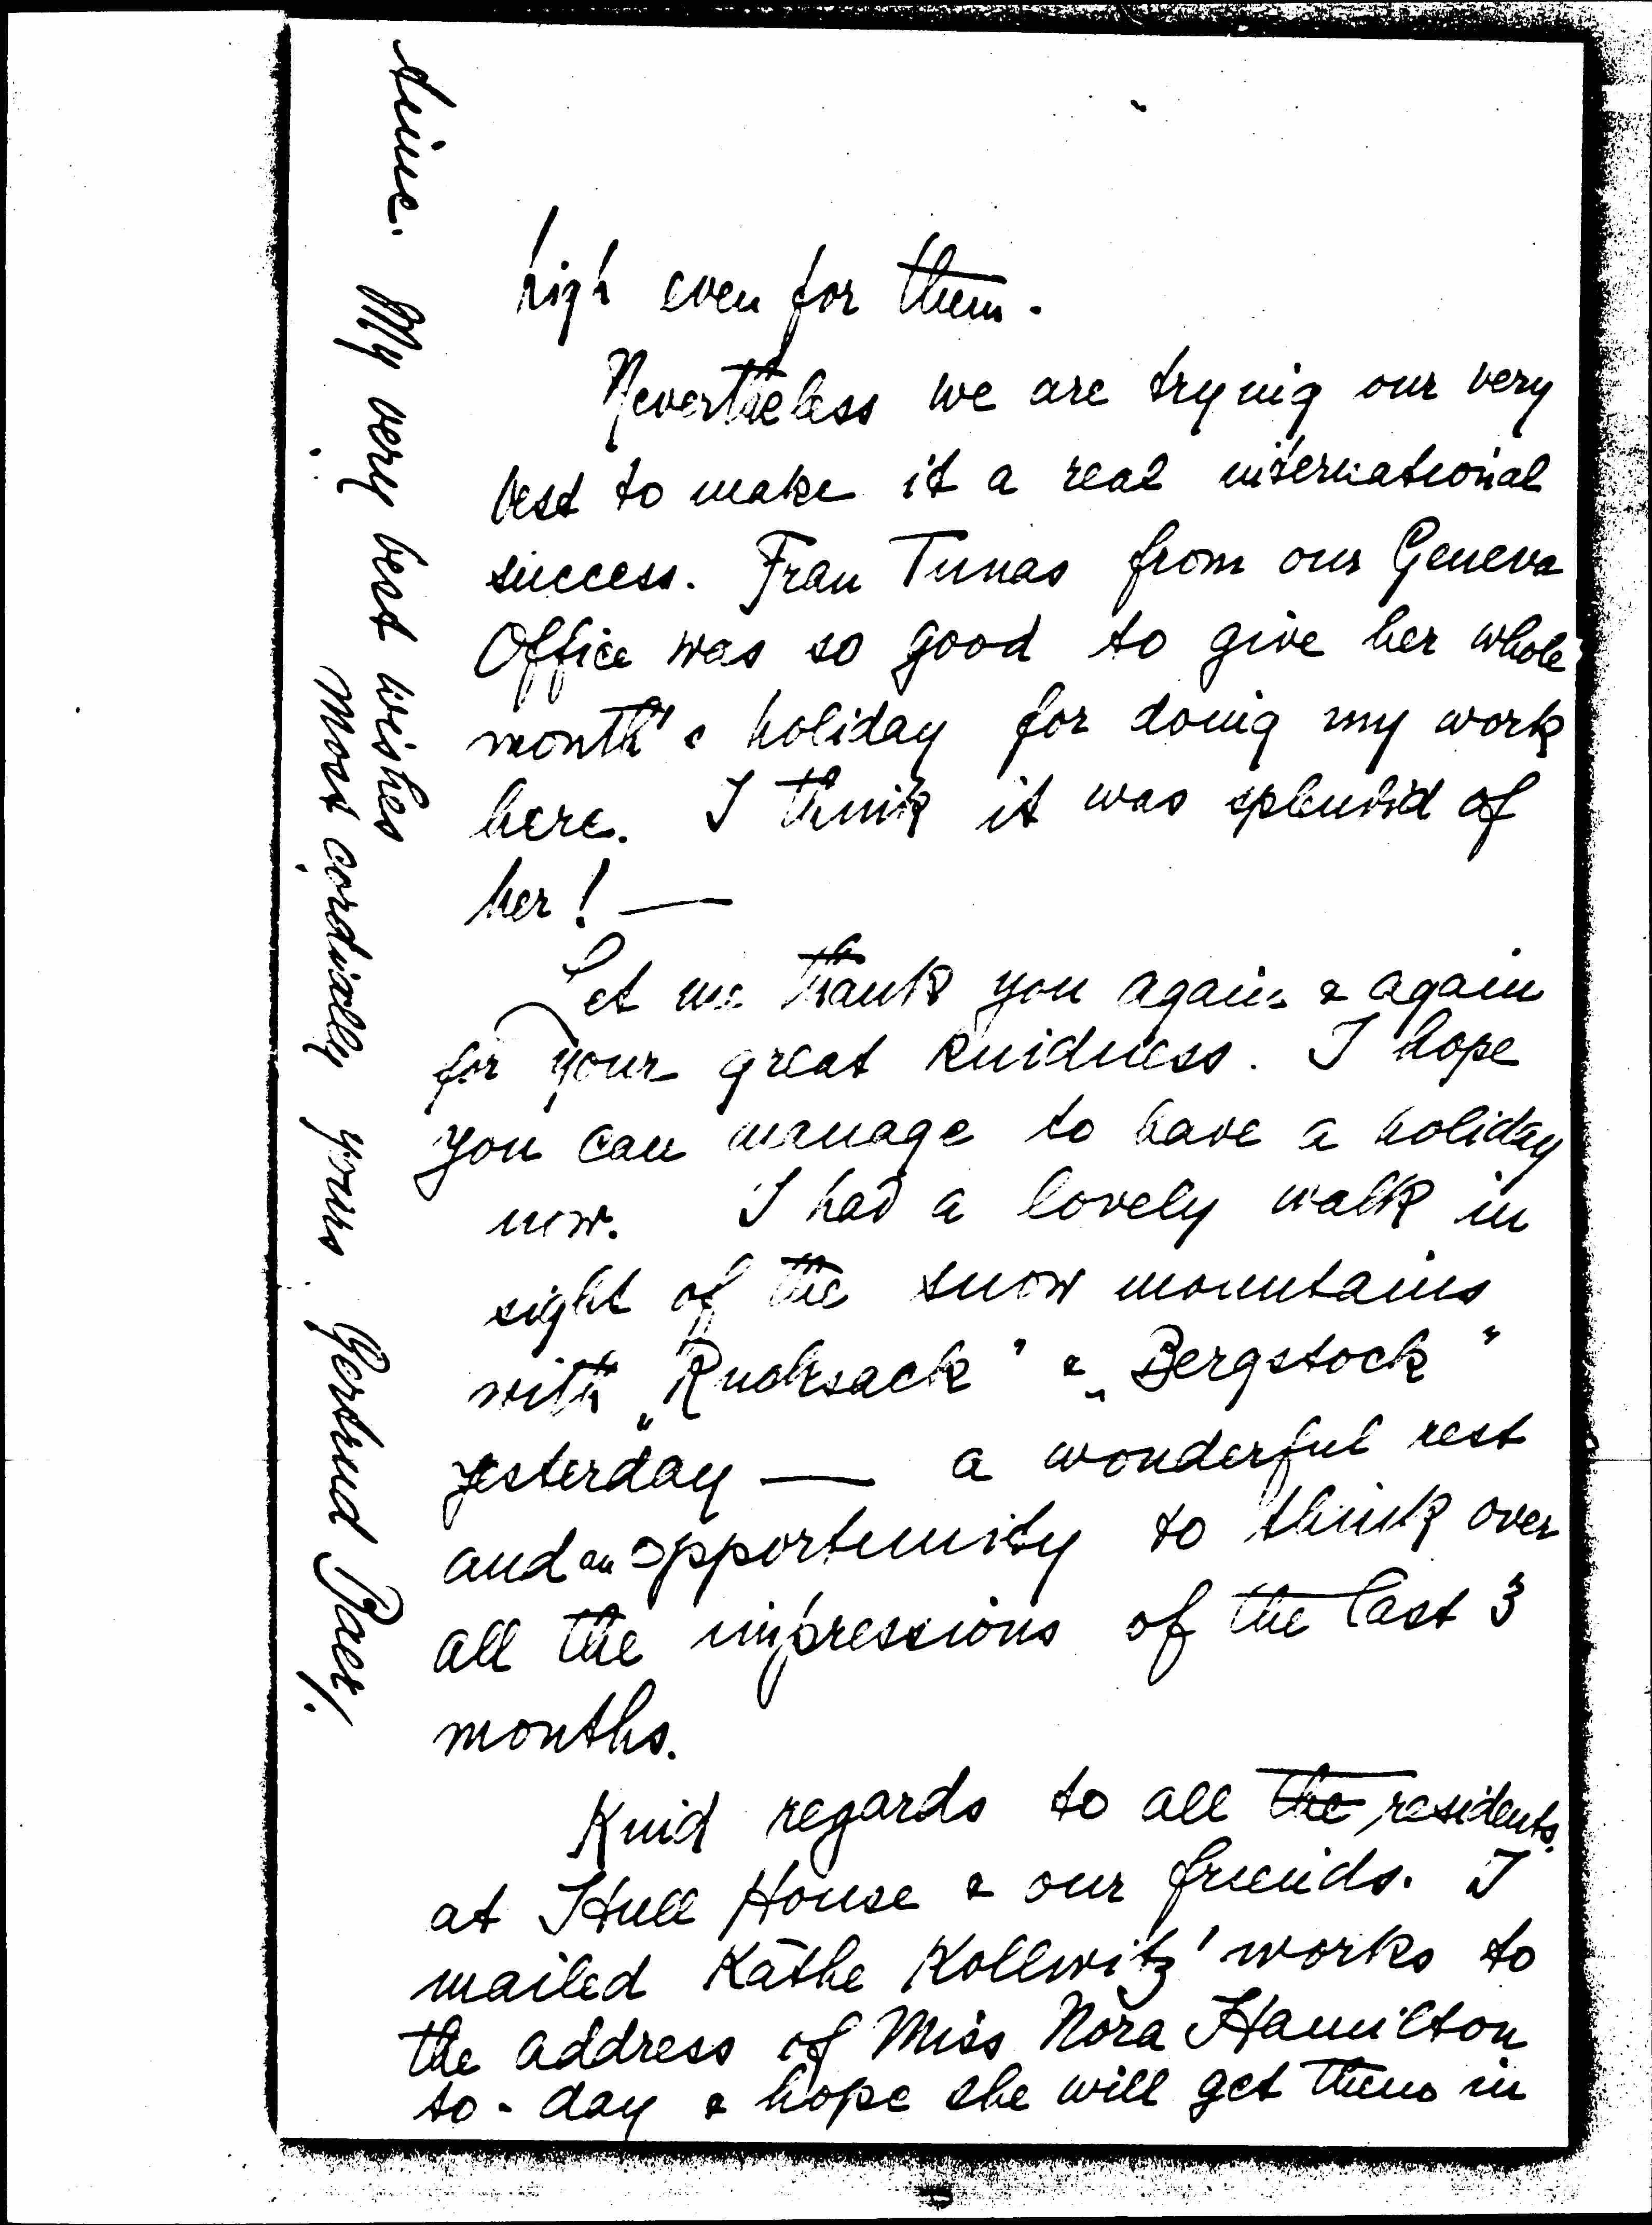 high even for them.
Nevertheless we are trying our very
best to make it a real international
success. Frau Tunas from our Geneva
Office was so good to give her whole
month's holiday for doing my work
here. I think it was splendid of
her! —
Let me thank you again & again
for your great kindness. I hope
you can manage to have a holiday
now. I had a lovely walk in
sight of the snow mountains
with „Rucksack" & „Bergstock"
yesterday — a wonderful rest
and an opportunity to think over
all the impressions of the last 3
months.
Kind regards to all the residents
at Hull House & our friends. I
mailed Käthe Kollwitz' works to
the address of Miss Nora Hamilton
to-day & hope she will get them in
time. My very best wishes
most cordially yours Gertrud Baer.